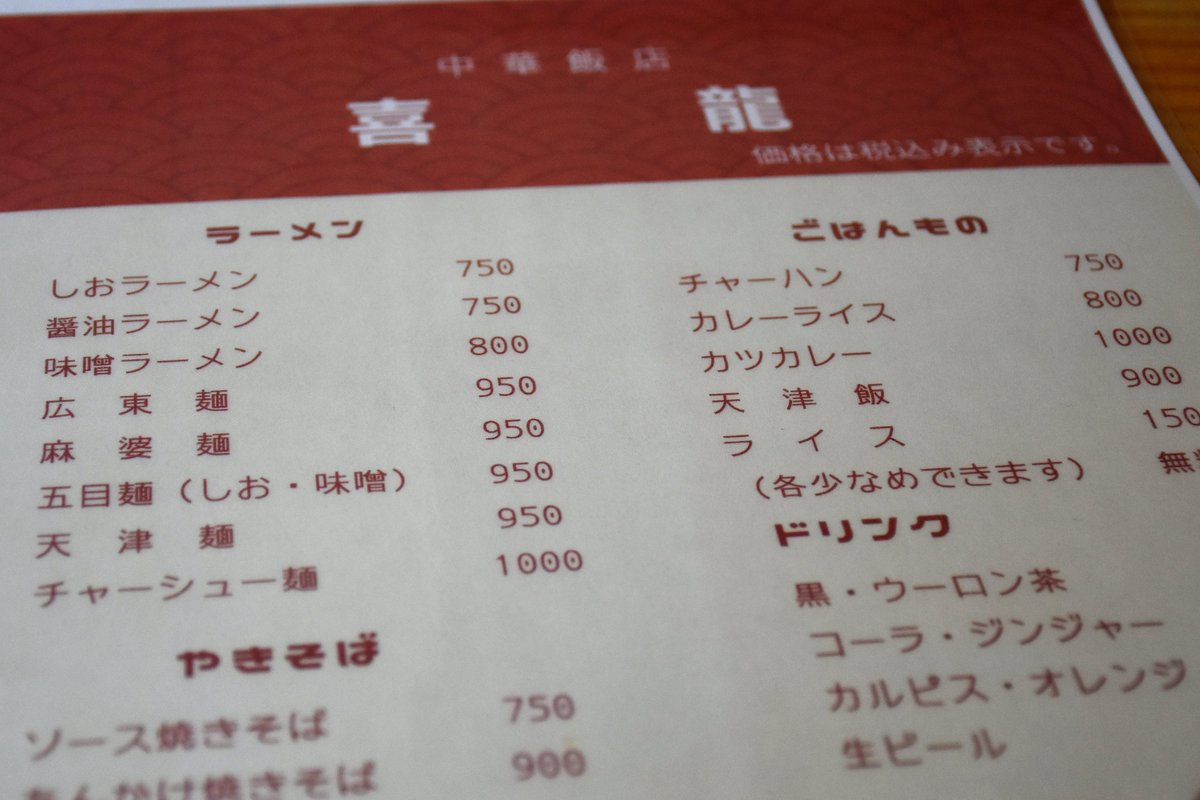 中華飯店
喜龍
価格は税込み表示です。
ラーメン
しおラーメン 750
醤油ラーメン 750
味噌ラーメン 800
広東麺 950
麻婆麺 950
五目麺（しお・味噌） 950
天津麺 950
チャーシュー麺 1000
やきそば
ソース焼きそば 750
あんかけ焼きそば 900
ごはんもの
チャーハン 750
カレーライス 800
カツカレー 1000
天津飯 900
ライス 150
（各少なめできます） 無
ドリンク
黒・ウーロン茶
コーラ・ジンジャー
カルピス・オレンジ
生ビール